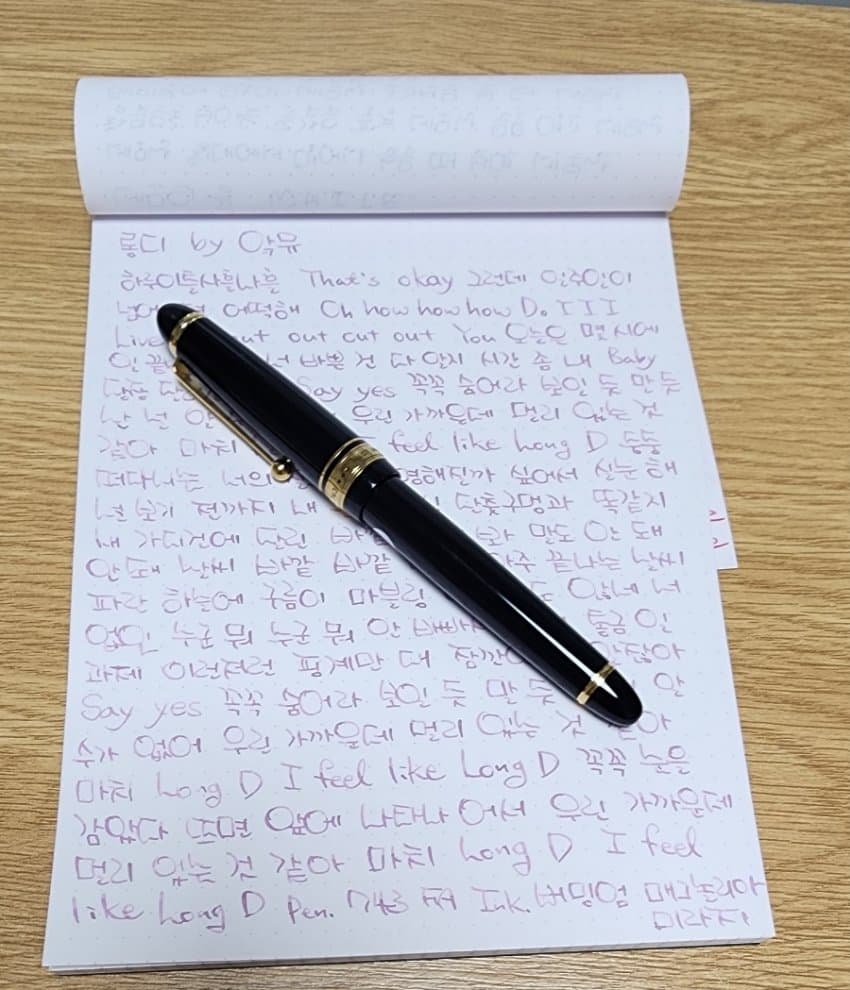 롱디 by 악뮤
하루이틀사흘나흘 That's okay 그런데 일주일이
어떡해 Oh how how how Do I I I
Live out cut out You 오늘은 몇 시에
일 끝 너 바쁜 건 다 알지 시간 좀 내 Baby
Say yes 꼭꼭 숨어라 보일 듯 말 듯
난 널 우린 가까운데 멀리 있는 것
같아 마치 feel like Long D 둥둥
떠다니는 너의 해질까 싶어서 실눈 해
널 보기 전까지 내 단춧구멍과 똑같지
내 가디건에 달린 봐라 말도 안 돼
안 돼 날씨 바깥 바깥 아주 끝나는 날씨
파란 하늘에 구름이 마블링 있네 너
없인 누군 뭐 누군 뭐 안 바빠 불금인
과제 이런저런 핑계만 대 잠깐 만잖아
Say yes 꼭꼭 숨어라 보일 듯 말 듯 알
수가 없어 우린 가까운데 멀리 있는 것 같아
마치 Long D I feel like Long D 꼭꼭 눈을
감았다 뜨면 앞에 나타나 어서 우린 가까운데
멀리 있는 것 같아 마치 Long D I feel
like Long D Pen. 743 FA Ink. 버밍엄 매그놀리아
미라지